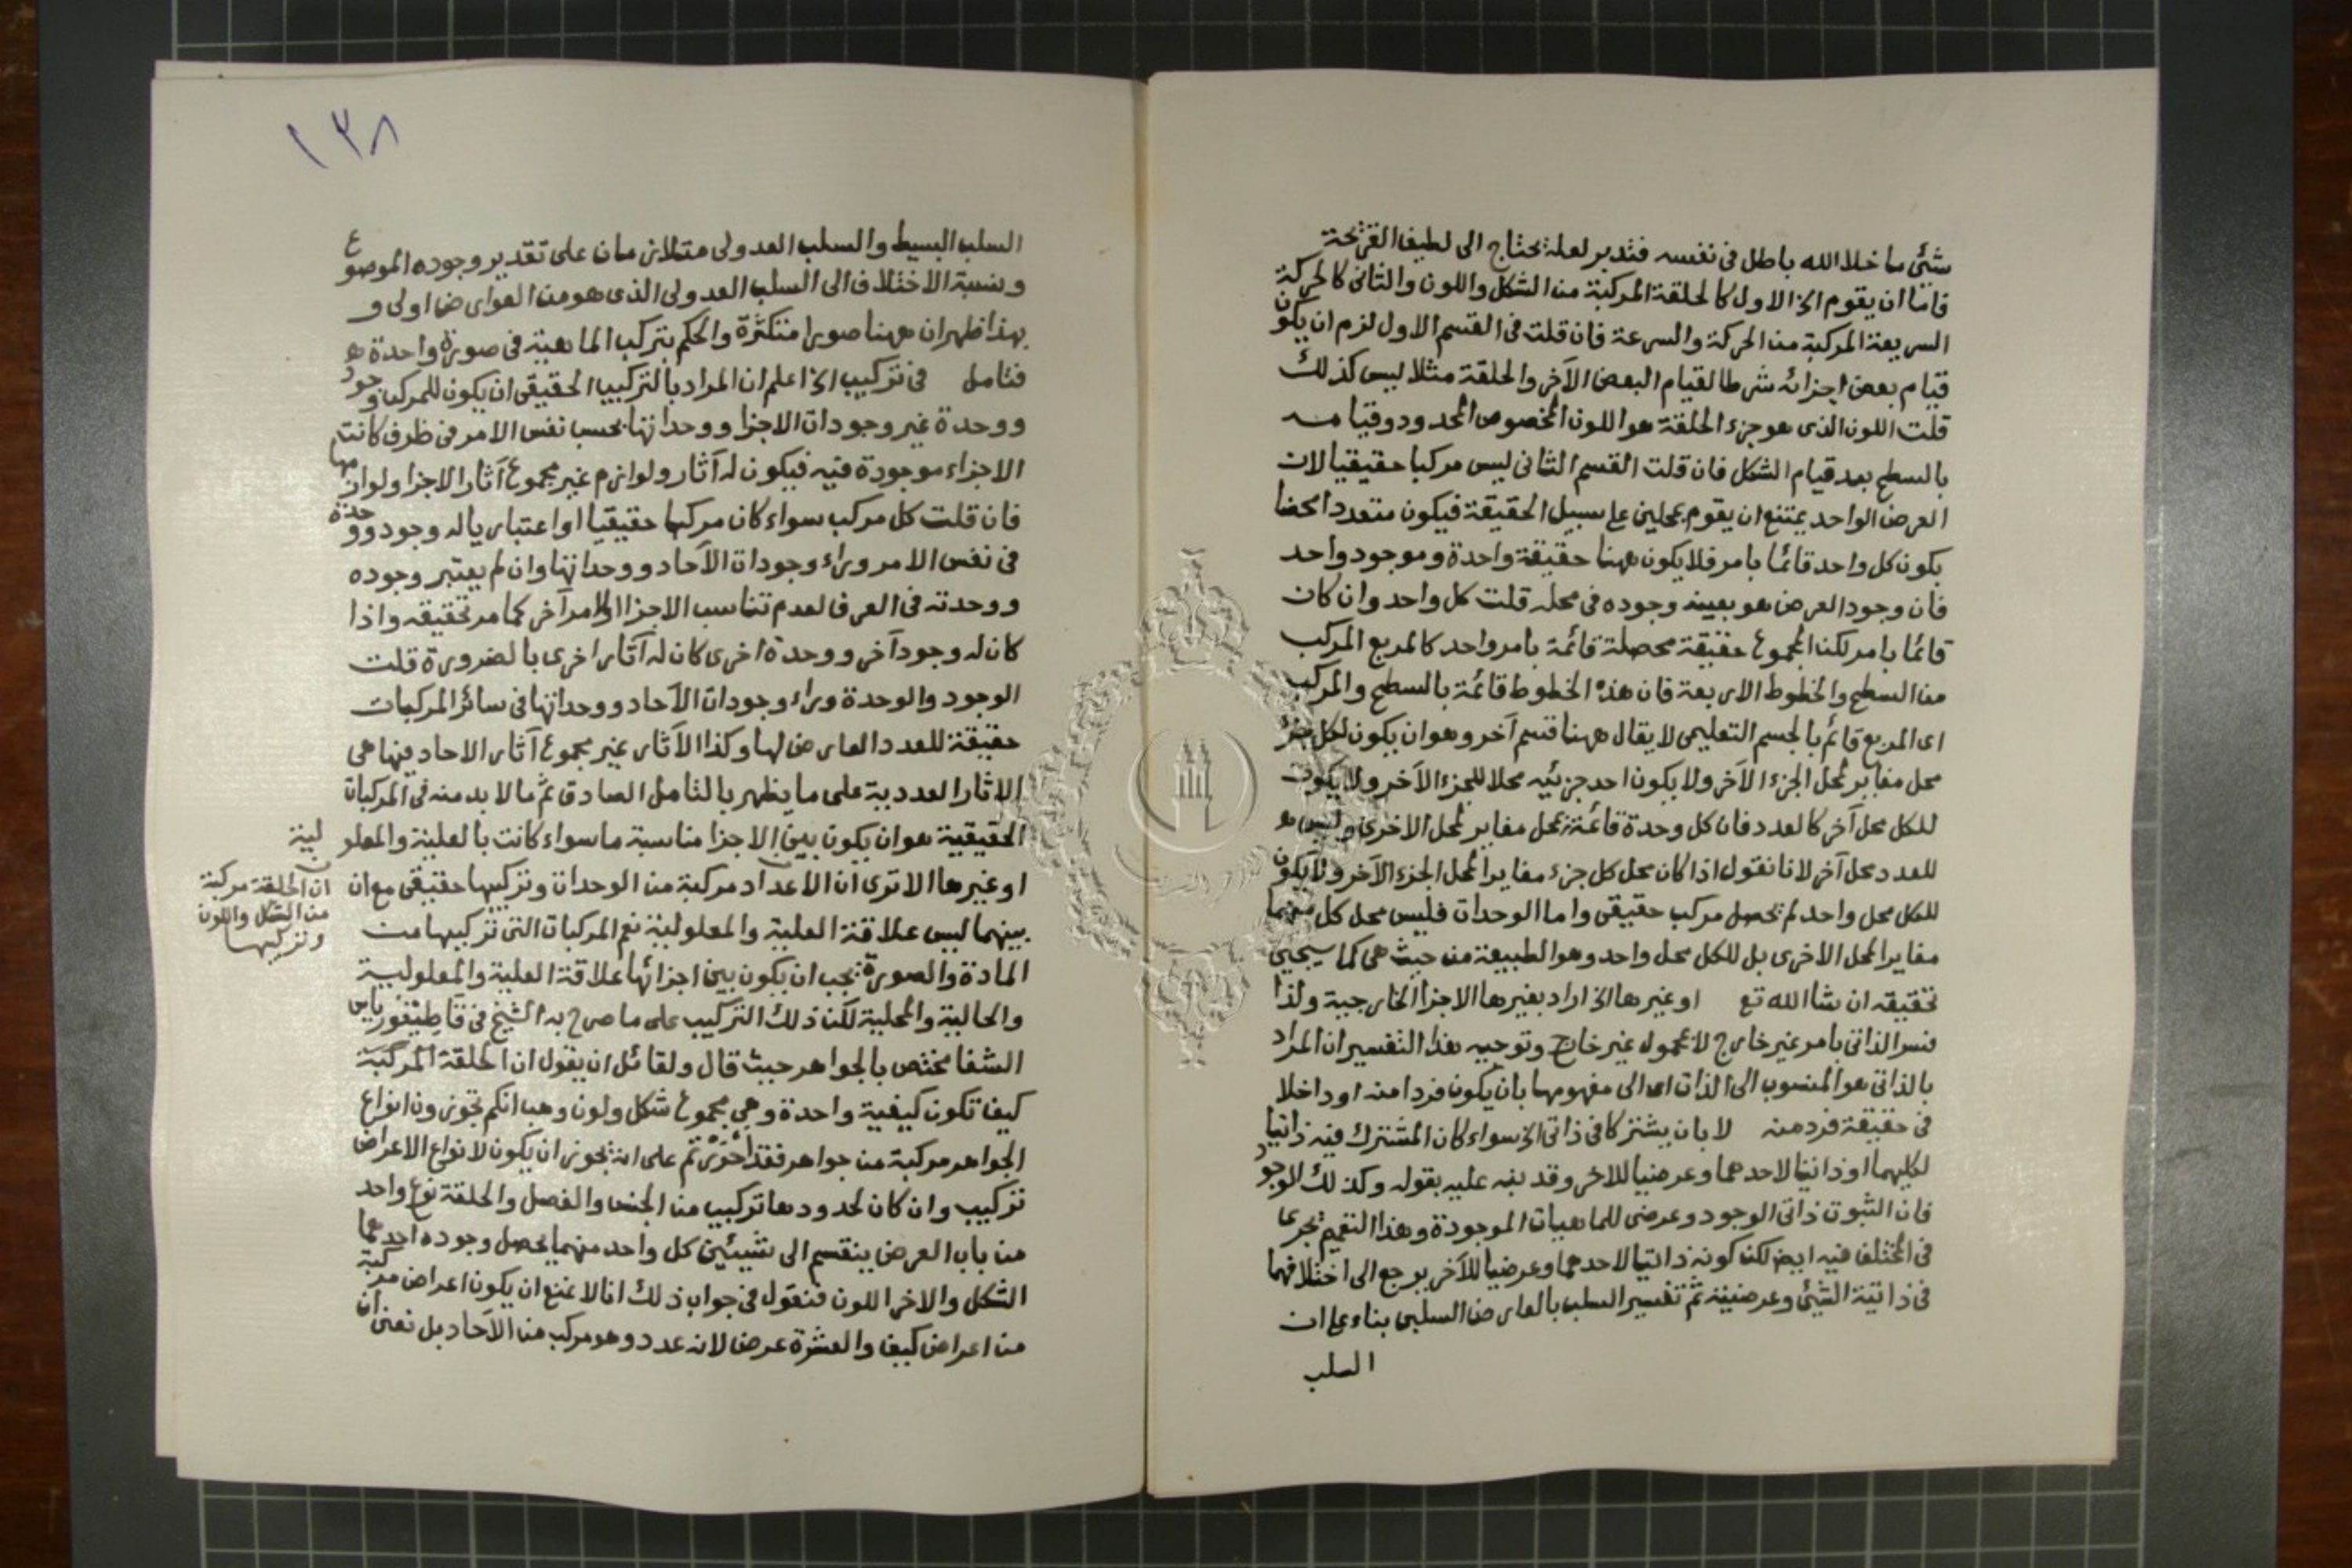 شئ ما خلا الله باطل فى نفسه فتدبر لعله يحتاج الى لطيف القريحة
فاما ان يقوم الخ الاول كالحلقة المركبة من الشكل واللون والثانى كالحركة
السريعة المركبة من الحركة والسرعة فان قلت فى القسم الاول لزم ان يكون
قيام بعض اجزائه شرطا لقيام البعض الآخر والحلقة مثلا ليس كذلك
قلت اللون الذى هو جزء الحلقة هو اللون المخصوص المحدود وقيامه
بالسطح بعد قيام الشكل فان قلت القسم الثانى ليس مركبا حقيقيا لان
العرض الواحد يمتنع ان يقوم بمحلين على سبيل الحقيقة فيكون متعددا محضا
يكون كل واحد قائما بامر فلا يكون ههنا حقيقة واحدة وموجود واحد
فان وجود العرض هو بعينه وجوده فى محله قلت كل واحد وان كان
قائما بامر لكن المجموع حقيقة محصلة قائمة بامر واحد كالمربع المركب
من السطح والخطوط الاربعة فان هذه الخطوط قائمة بالسطح والمركب
اى المربع قائم بالجسم التعليمى لا يقال ههنا قسم آخر وهو ان يكون لكل جزء
محل مغاير لمحل الجزء الآخر ولا يكون احد جزئيه محلا للجزء الآخر ولا يكون
للكل محل آخر كالعدد فان كل وحدة قائمة بمحل مغاير لمحل الاخرى وليس هو
للعدد محل آخر لانا نقول اذا كان محل كل جزء مغايرا لمحل الجزء الآخر ولا يكون
للكل محل واحد لم يحصل مركب حقيقى واما الوحدات فليس محل كل منهما
مغايرا لمحل الاخرى بل للكل محل واحد وهو الطبيعة من حيث هى كما سيجيئ
تحقيقه ان شا الله تع او غيرها الخ اراد بغيرها الاجزا الخارجية ولذا
فسر الذاتى بامر غير خارج لا بمحمول غير خارج وتوجيه هذا التفسير ان المراد
بالذاتى هو المنسوب الى الذات اى الى مفهومها بان يكون فردا منه او داخلا
فى حقيقة فرد منه لا بان يشتركا فى ذاتى الخ سواء كان المشترك فيه ذاتيا
لكليهما او ذاتيا لاحدهما وعرضيا للاخر وقد نبه عليه بقوله وكذلك الوجود
فان الثبوت ذاتى الوجود وعرضى للماهيات الموجودة وهذا التعميم يجرى
فى المختلف فيه ايضا لكن كونه ذاتيا لاحدهما وعرضيا للآخر يرجع الى اختلافهما
فى ذاتية الشئ وعرضيته ثم تفسير السلب بالعارض السلبى بناء على ان
السلب
١٣٨
السلب البسيط والسلب العدولى متلازمان على تقدير وجوده الموضوع
ونسبة الاختلاف الى السلب العدولى الذى هو من العوارض اولى و
بهذا ظهر ان ههنا صورا متكثرة والحكم بتركب الماهية فى صورة واحدة هو
فتامل فى تركيب الخ اعلم ان المراد بالتركيب الحقيقى ان يكون للمركب وجود
ووحدة غير وجودات الاجزا ووحداتها بحسب نفس الامر فى ظرف كانت
الاجزاء موجودة فيه فيكون له آثار ولوازم غير مجموع آثار الاجزا ولوازمها
فان قلت كل مركب سواء كان مركبا حقيقيا او اعتباريا له وجود ووحدة
فى نفس الامر وراء وجودات الآحاد ووحداتها وان لم يعتبر وجوده
ووحدته فى العرف لعدم تناسب الاجزا او لامر آخر كما مر تحقيقه واذا
كان له وجود آخر ووحدة اخرى كان له آثار اخرى بالضرورة قلت
الوجود والوحدة وراء وجودات الآحاد ووحداتها فى سائر المركبات
حقيقة للعدد العارض لها وكذا الآثار غير مجموع آثار الاحاد فيها هى
الاثار العددية على ما يظهر بالتامل الصادق ثم مالا بد منه فى المركبات
الحقيقية هو ان يكون بين الاجزا مناسبة ما سواء كانت بالعلية والمعلو لية
او غيرها الا ترى ان الاعداد مركبة من الوحدات وتركيبها حقيقى مع ان
ان الحلقة مركبة
من الشكل واللون
وتركيبها
بينهما ليس علاقة العلية والمعلولية نعم المركبات التى تركيبها من
المادة والصورة يجب ان يكون بين اجزائها علاقة العلية والمعلولية
والحالية والمحلية لكن ذلك التركيب على ما صرح به الشيخ فى قاطيغورياس
الشفا مختص بالجواهر حيث قال ولقائل ان يقول ان الحلقة المركبة
كيف تكون كيفية واحدة وهى مجموع شكل ولون وهب انكم تجوزون انواع
الجواهر مركبة من جواهر فقد تم على انه يجوز ان يكون لانواع الاعراض
تركيب وان كان لحدودها تركيب من الجنس والفصل والحلقة نوع واحد
من باب العرض ينقسم الى شيئين كل واحد منهما يحصل وجوده احدهما
الشكل والاخر اللون فنقول فى جواب ذلك انا لا نمنع ان يكون اعراض مركبة
من اعراض كيف والعشرة عرض لانه عدد وهو مركب من الآحاد بل نعنى ان